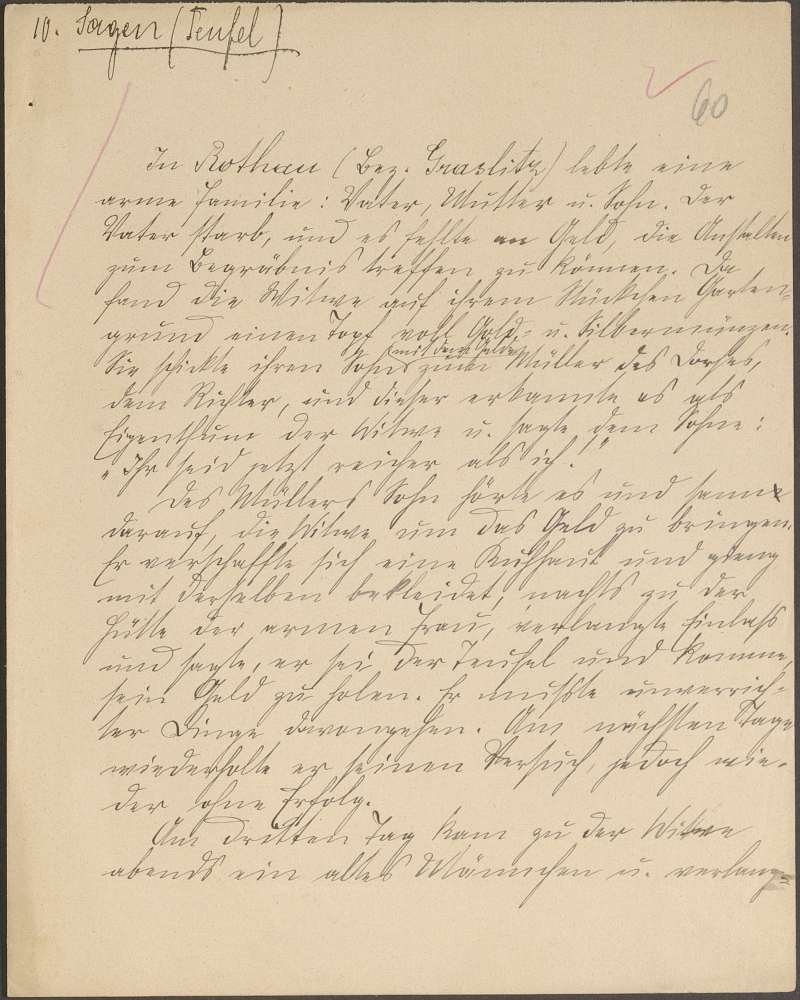 10. Sagen (Teufel)
60
In Rothau (Bez. Graslitz) lebte eine
arme Familie: Vater, Mutter u. Sohn. Der
Vater starb, und es fehlte an Geld, die Anstalten
zum Begräbnis treffen zu können. Da
fand die Witwe auf ihrem Stückchen Garten-
grund einen Topf voll Gold- u. Silbermünzen.
Sie schickte ihren Sohn mit dem Gelde zum Müller des Dorfes,
dem Richter, und dieser erkannte es als
Eigenthum der Witwe u. sagte dem Sohne:
„Ihr seid jetzt reicher als ich!"
Des Müllers Sohn hörte es und sann
darauf, die Witwe um das Geld zu bringen.
Er verschaffte sich eine Kuhhaut und gieng
mit derselben bekleidet, nachts zu der
Hütte der armen Frau, verlangte Einlaß
und sagte, er sei der Teufel und komme,
sein Geld zu holen. Er mußte unverrich-
ter Dinge davongehen. Am nächsten Tage
wiederholte er seinen Versuch, jedoch wie-
der ohne Erfolg.
Am dritten Tag kam zu der Witwe
abends ein altes Männchen u. verlang-